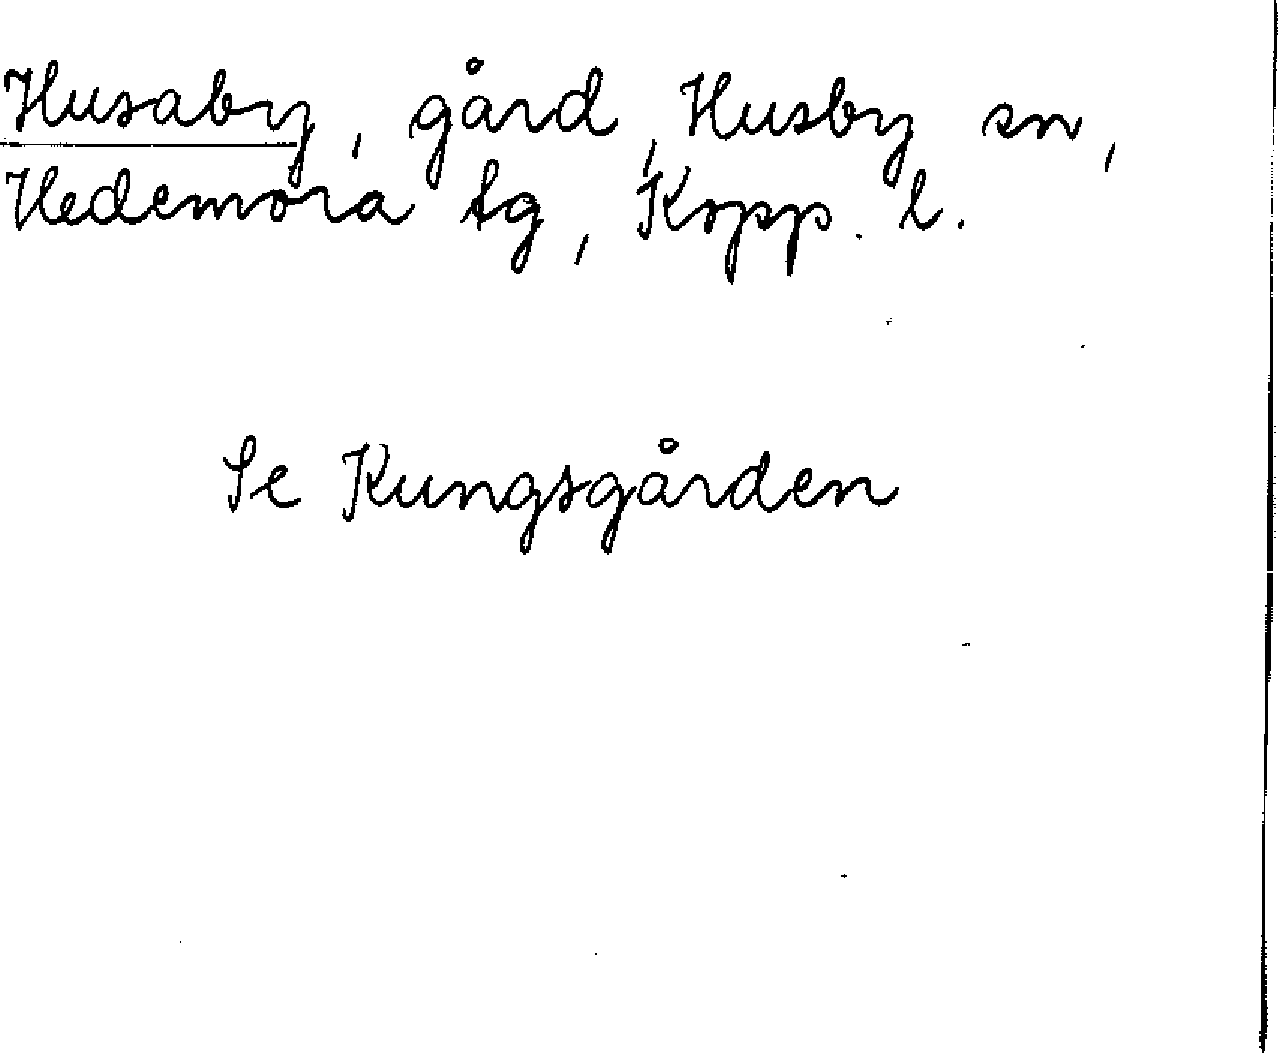 Husaby, gård, Husby sn,
Hedemora tg, Kopp. l.
Se Kungsgården